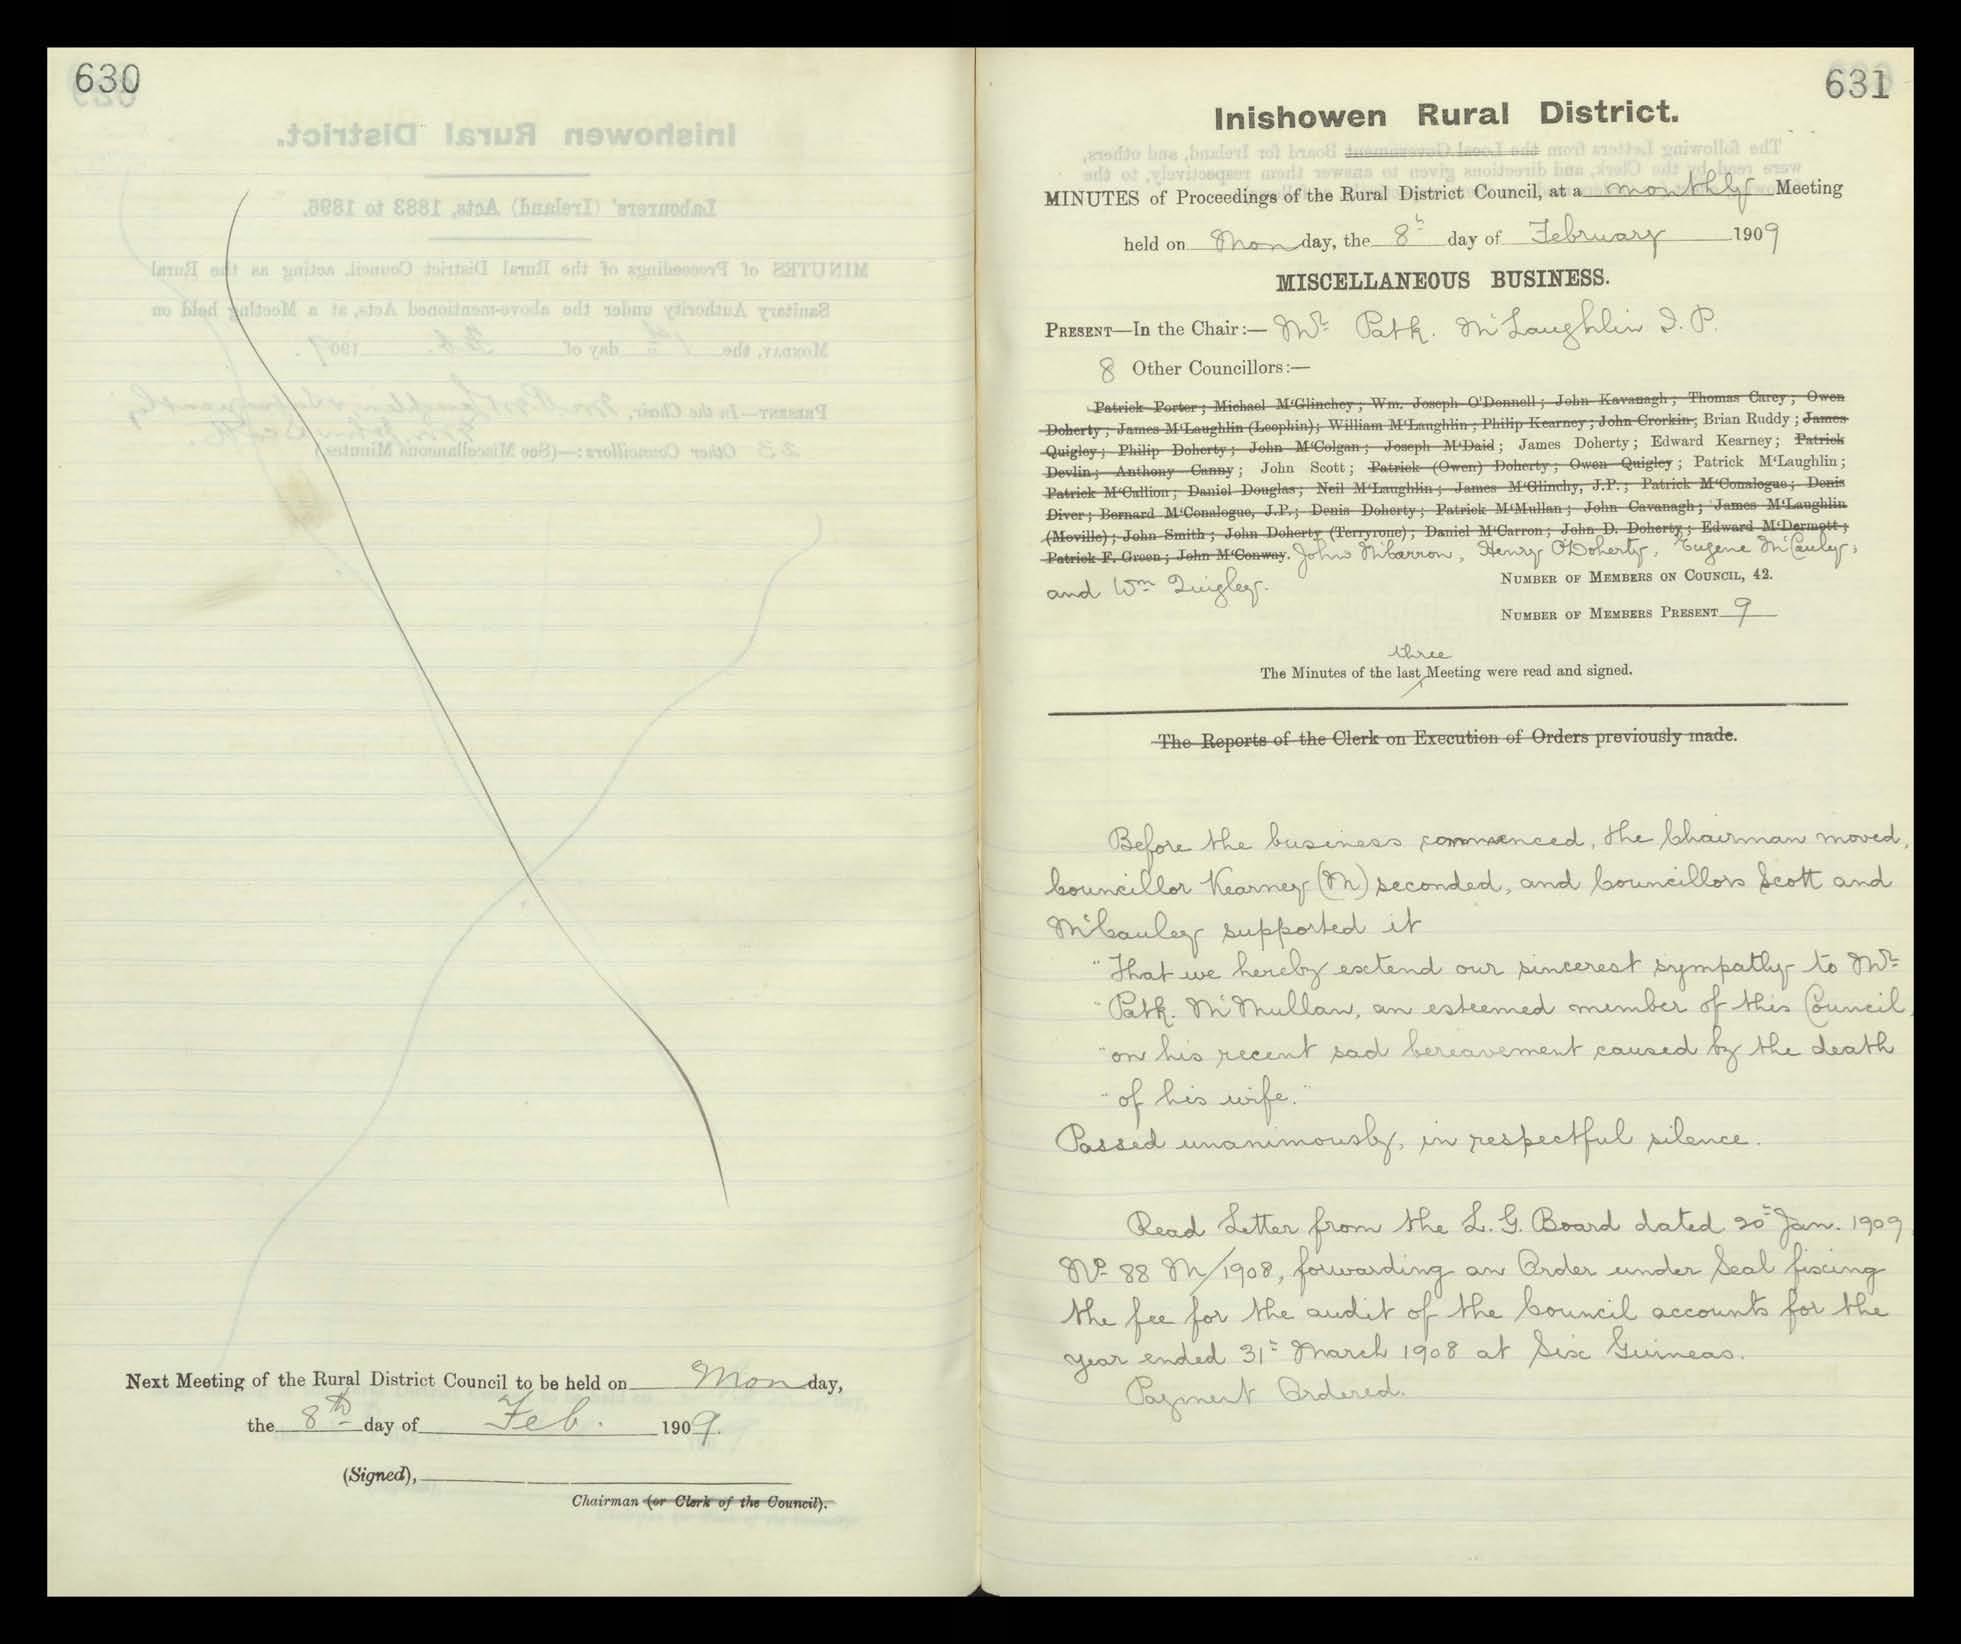 630
Next Meeting of the Rural District Council to be held on Monday,
the 8th day of Feb. 1909.
(Signed),
Chairman (or Clerk of the Council).
631
Inishowen Rural District.
MINUTES of Proceedings of the Rural District Council, at a monthly Meeting
held on Monday, the 8th day of February 1909
MISCELLANEOUS BUSINESS.
PRESENT—In the Chair:— Mr. Patk. McLaughlin J. P.
8 Other Councillors:—
Patrick Porter; Michael M‘Glinchey; Wm. Joseph O'Donnell; John Kavanagh; Thomas Carey; Owen
Doherty; James M‘Laughlin (Leophin); William M‘Laughlin; Philip Kearney; John Crorkin; Brian Ruddy; James
Quigley; Philip Doherty; John M‘Colgan; Joseph M‘Daid; James Doherty; Edward Kearney; Patrick
Devlin; Anthony Canny; John Scott; Patrick (Owen) Doherty; Owen Quigley; Patrick M‘Laughlin;
Patrick M‘Callion; Daniel Douglas; Neil M‘Laughlin; James M‘Glinchy, J.P.; Patrick M‘Conalogue; Denis
Diver; Bernard M‘Conalogue, J.P.; Denis Doherty; Patrick M‘Mullan; John Cavanagh; James M‘Laughlin
(Moville); John Smith; John Doherty (Terryrone); Daniel M‘Carron; John D. Doherty; Edward M‘Dermott;
Patrick F. Green; John M‘Conway. John McCarron, Henry O'Doherty, Eugene McCauley,
and Wm Quigley.
NUMBER OF MEMBERS ON COUNCIL, 42.
NUMBER OF MEMBERS PRESENT 9
three
The Minutes of the last Meeting were read and signed.
The Reports of the Clerk on Execution of Orders previously made.
Before the business commenced, the Chairman moved,
Councillor Kearney (M) seconded, and Councillors Scott and
McCauley supported it
"That we hereby extend our sincerest sympathy to Mr.
"Patk. McMullan, an esteemed member of this Council,
"on his recent sad bereavement caused by the death
"of his wife."
Passed unanimously, in respectful silence.
Read Letter from the L. G. Board dated 20th Jan. 1909
No 88 M/1908, forwarding an Order under Seal fixing
the fee for the audit of the Council accounts for the
year ended 31st March 1908 at Six Guineas.
Payment Ordered.